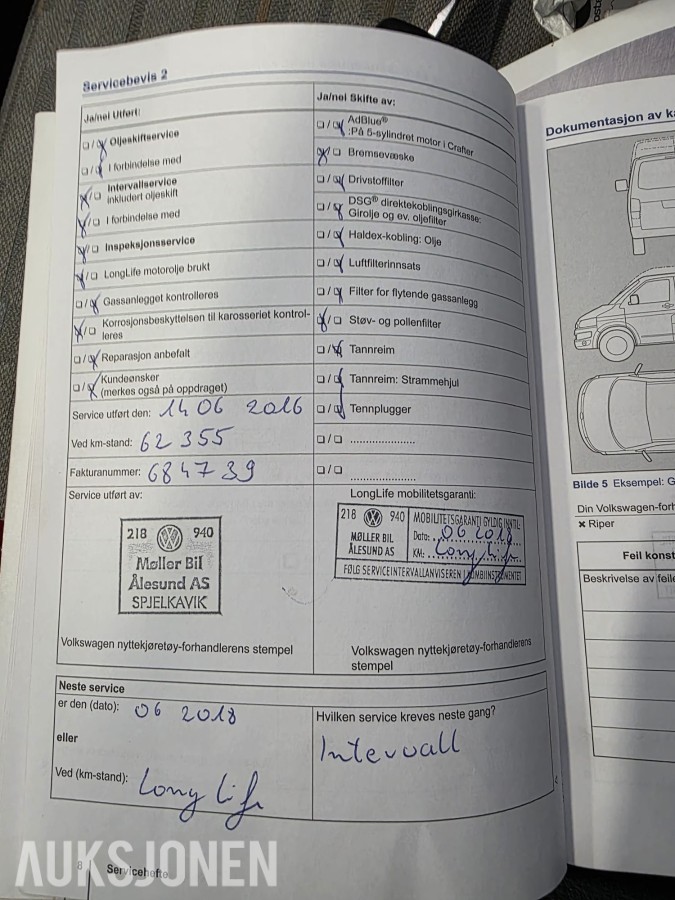 Servicebevis 2
Ja/nei Utført:
☐/☒ Oljeskiftservice
☐/☒ I forbindelse med
☒/☐ Intervallservice
inkludert oljeskift
☒/☐ I forbindelse med
☒/☐ Inspeksjonsservice
☒/☐ LongLife motorolje brukt
☐/☒ Gassanlegget kontrolleres
☒/☐ Korrosjonsbeskyttelsen til karosseriet kontrol-
leres
☐/☒ Reparasjon anbefalt
☐/☒ Kundeønsker
(merkes også på oppdraget)
Service utført den: 14 06 2016
Ved km-stand: 62 355
Fakturanummer: 684739
Service utført av:
218 940
Møller Bil
Ålesund AS
SPJELKAVIK
Volkswagen nyttekjøretøy-forhandlerens stempel
Ja/nei Skifte av:
☐/☒ AdBlue®
:På 5-sylindret motor i Crafter
☒/☐ Bremsevæske
☐/☒ Drivstoffilter
☐/☒ DSG® direktekoblingsgirkasse:
Girolje og ev. oljefilter
☐/☒ Haldex-kobling: Olje
☐/☒ Luftfilterinnsats
☐/☒ Filter for flytende gassanlegg
☒/☐ Støv- og pollenfilter
☐/☒ Tannreim
☐/☒ Tannreim: Strammehjul
☐/☒ Tennplugger
☐/☐ .....................
☐/☐ .....................
LongLife mobilitetsgaranti:
218 940
MØLLER BIL
ÅLESUND AS
MOBILITETSGARANTI GYLDIG INNTIL
Dato: 06 2018
KM: Long Life
FØLG SERVICEINTERVALLANVISEREN I KOMBIINSTRUMENTET
Volkswagen nyttekjøretøy-forhandlerens
stempel
Neste service
er den (dato): 06 2018
eller
Ved (km-stand): Long Life
Hvilken service kreves neste gang?
Intervall
8 Servicehefte
AUKSJONEN
Dokumentasjon av
Bilde 5 Eksempel:
Din Volkswagen-
× Riper
Feil
Beskrivelse av